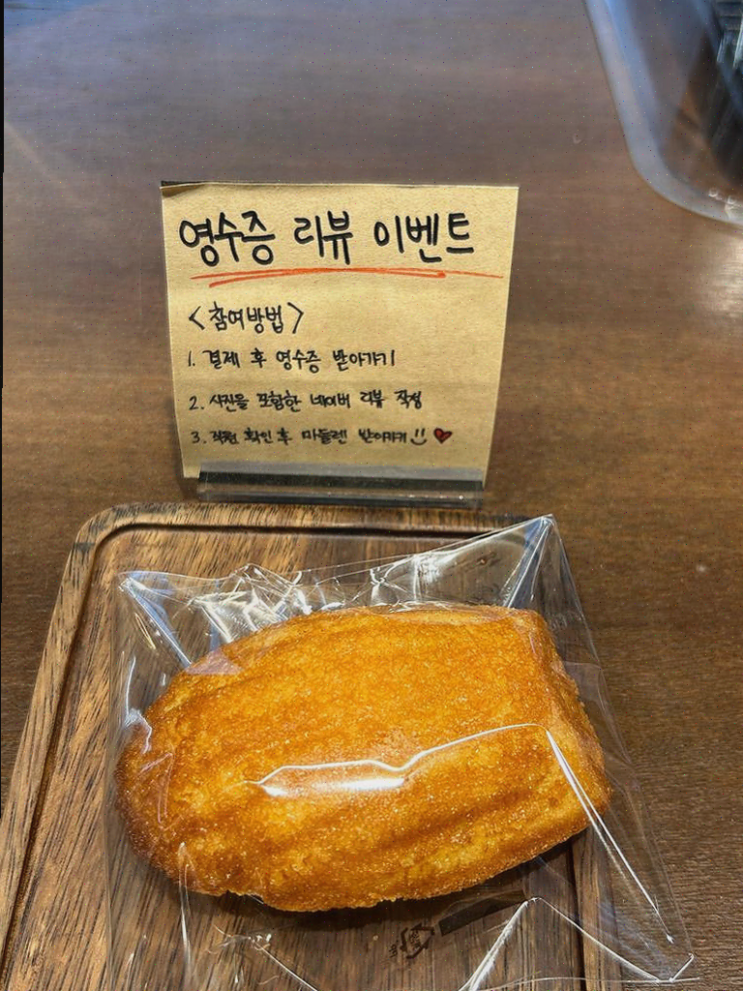 영수증 리뷰 이벤트
<참여방법>
1. 결제 후 영수증 받아가기
2. 사진을 포함한 네이버 리뷰 작성
3. 직원 확인 후 마들렌 받아가기